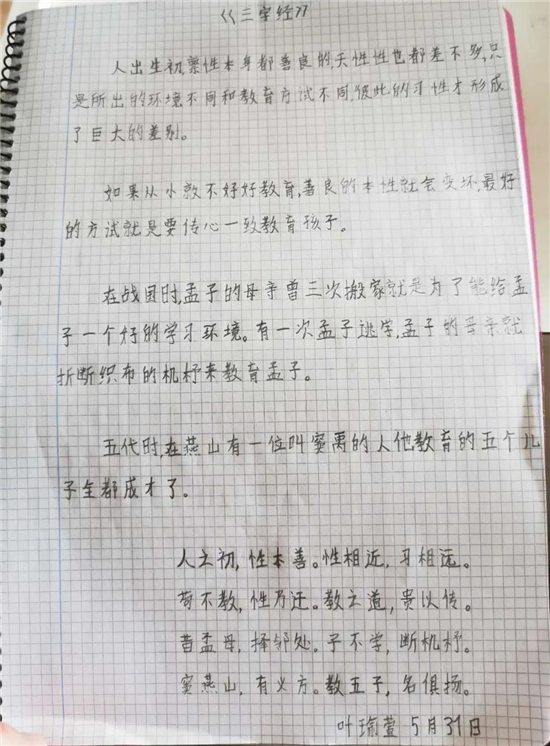 《三字经》
人出生初禀性本身都善良的,天性性也都差不多,只
是所出的环境不同和教育方试不同,彼此的习性才形成
了巨大的差别。
如果从小就不好好教育,善良的本性就会变坏,最好
的方试就是要传心一致教育孩子。
在战国时,孟子的母亲曾三次搬家就是为了能给孟
子一个好的学习环境。有一次孟子逃学,孟子的母亲就
折断织布的机杼来教育孟子。
五代时,在燕山有一位叫窦禹的人他教育的五个儿
子全都成才了。
人之初,性本善。性相近,习相远。
苟不教,性乃迁。教之道,贵以传。
昔孟母,择邻处,子不学,断机杼。
窦燕山,有义方。教五子,名俱扬。
叶瑜萱 5月31日